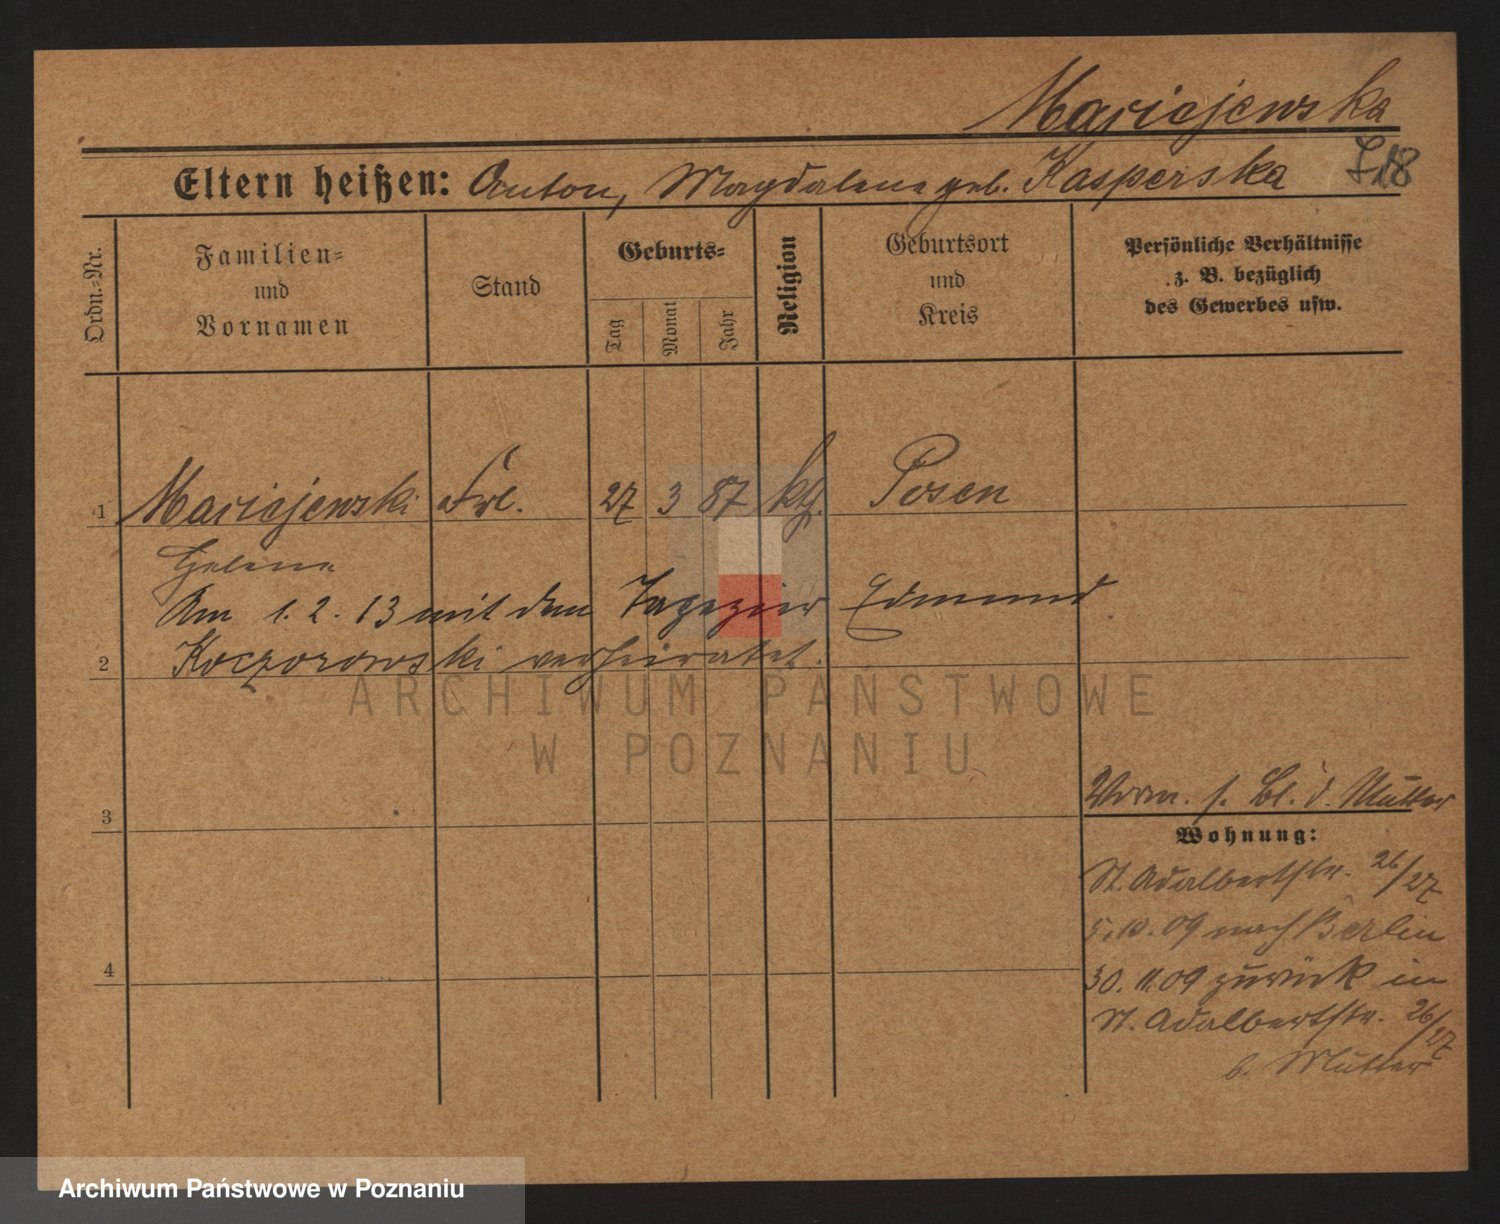 Maciejewska
Eltern heißen: Anton, Magdalena geb. Kasperska
Ordn.-Nr.
Familien-
und
Vornamen
Stand
Geburts-
Tag
Monat
Jahr
Religion
Geburtsort
und
Kreis
Persönliche Verhältnisse
z. B. bezüglich
des Gewerbes usw.
1 Maciejewski Frl. 27 3 87 kth. Posen
Helene
Am 1. 2. 13 mit dem Tapezier Edmund
2 Koczorowski verheiratet.
ARCHIWUM PAŃSTWOWE
W POZNANIU
3
Vorm. s. Bl. d. Mutter
Wohnung:
St. Adalbertstr. 26/27
5.10.09 nach Berlin
4
30.11.09 zurück in
St. Adalbertstr. 26/27
b. Mutter
Archiwum Państwowe w Poznaniu